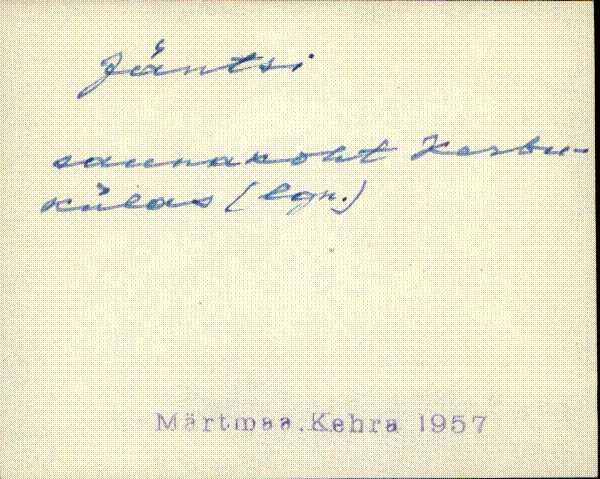 Jäntsi
saunakoht Kersu-
külas (lgn.)
Märtmaa. Kehra 1957